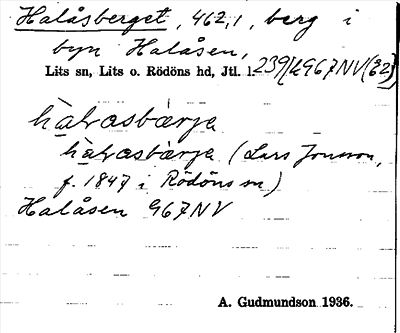 Halåsberget, 462,1, berg i
byn Halåsen,
Lits sn, Lits o. Rödöns hd, Jtl. l.
hàlvasbærja
hàlvasbærja (Lars Jonsson,
f. 1847 i Rödöns sn)
Halåsen 967NV
A. Gudmundson 1936.